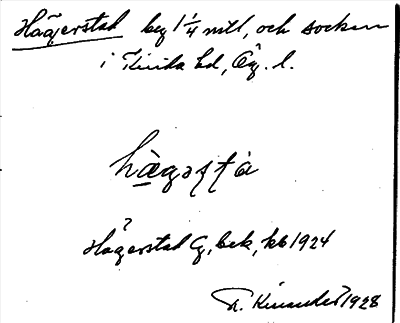 Hägerstad by 1 1/4 mtl, och socken
i Kinda hd, Ög. l.
hägəsta
Hägerstad G, bek, kb 1924
R. Kinander 1928